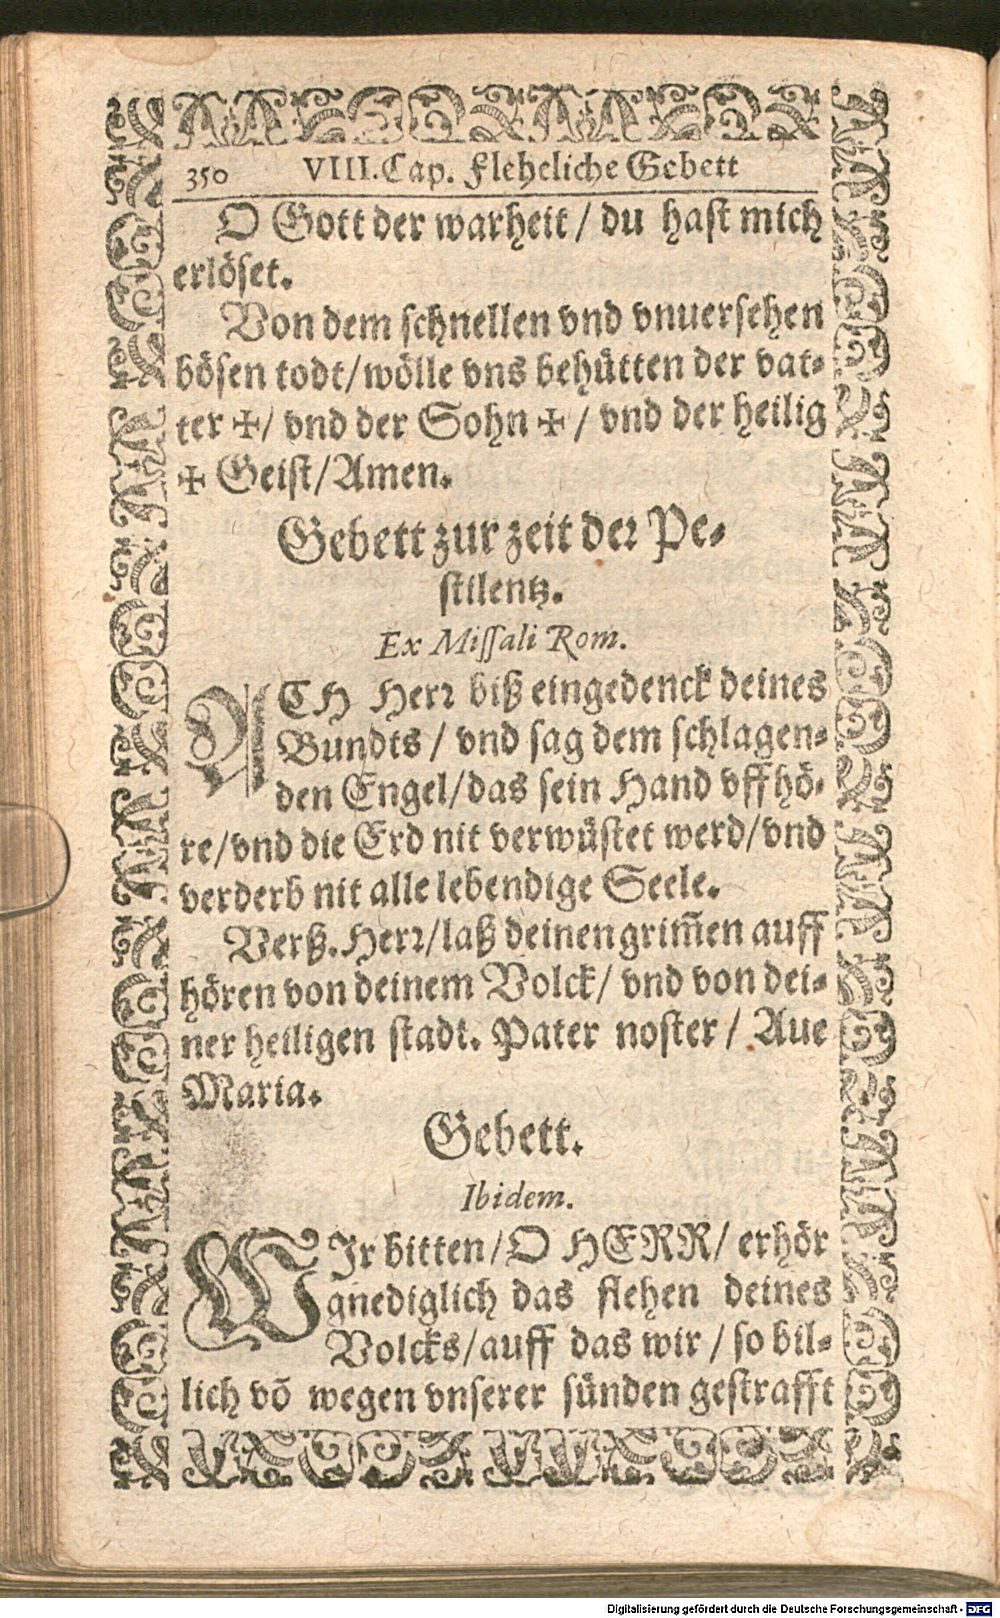 350 VIII. Cap. Fleheliche Gebett
O Gott der warheit / du hast mich
erlöset.
Von dem schnellen vnd vnuersehen
bösen todt/wölle vns behütten der vat-
ter ✠/ vnd der Sohn ✠ / vnd der heilig
✠ Geist/Amen.
Gebett zur zeit der Pe-
stilentz.
Ex Missali Rom.
ACH Herr biß eingedenck deines
Bundts / vnd sag dem schlagen-
den Engel/das sein Hand vffhö-
re/vnd die Erd nit verwüstet werd/vnd
verderb nit alle lebendige Seele.
Verß. Herr/laß deinen grim̃en auff
hören von deinem Volck/ vnd von dei-
ner heiligen stadt. Pater noster / Aue
Maria.
Gebett.
Ibidem.
WIr bitten/O HERR/ erhör
gnediglich das flehen deines
Volcks/auff das wir / so bil-
lich võ wegen vnserer sünden gestrafft
Digitalisierung gefördert durch die Deutsche Forschungsgemeinschaft - DFG